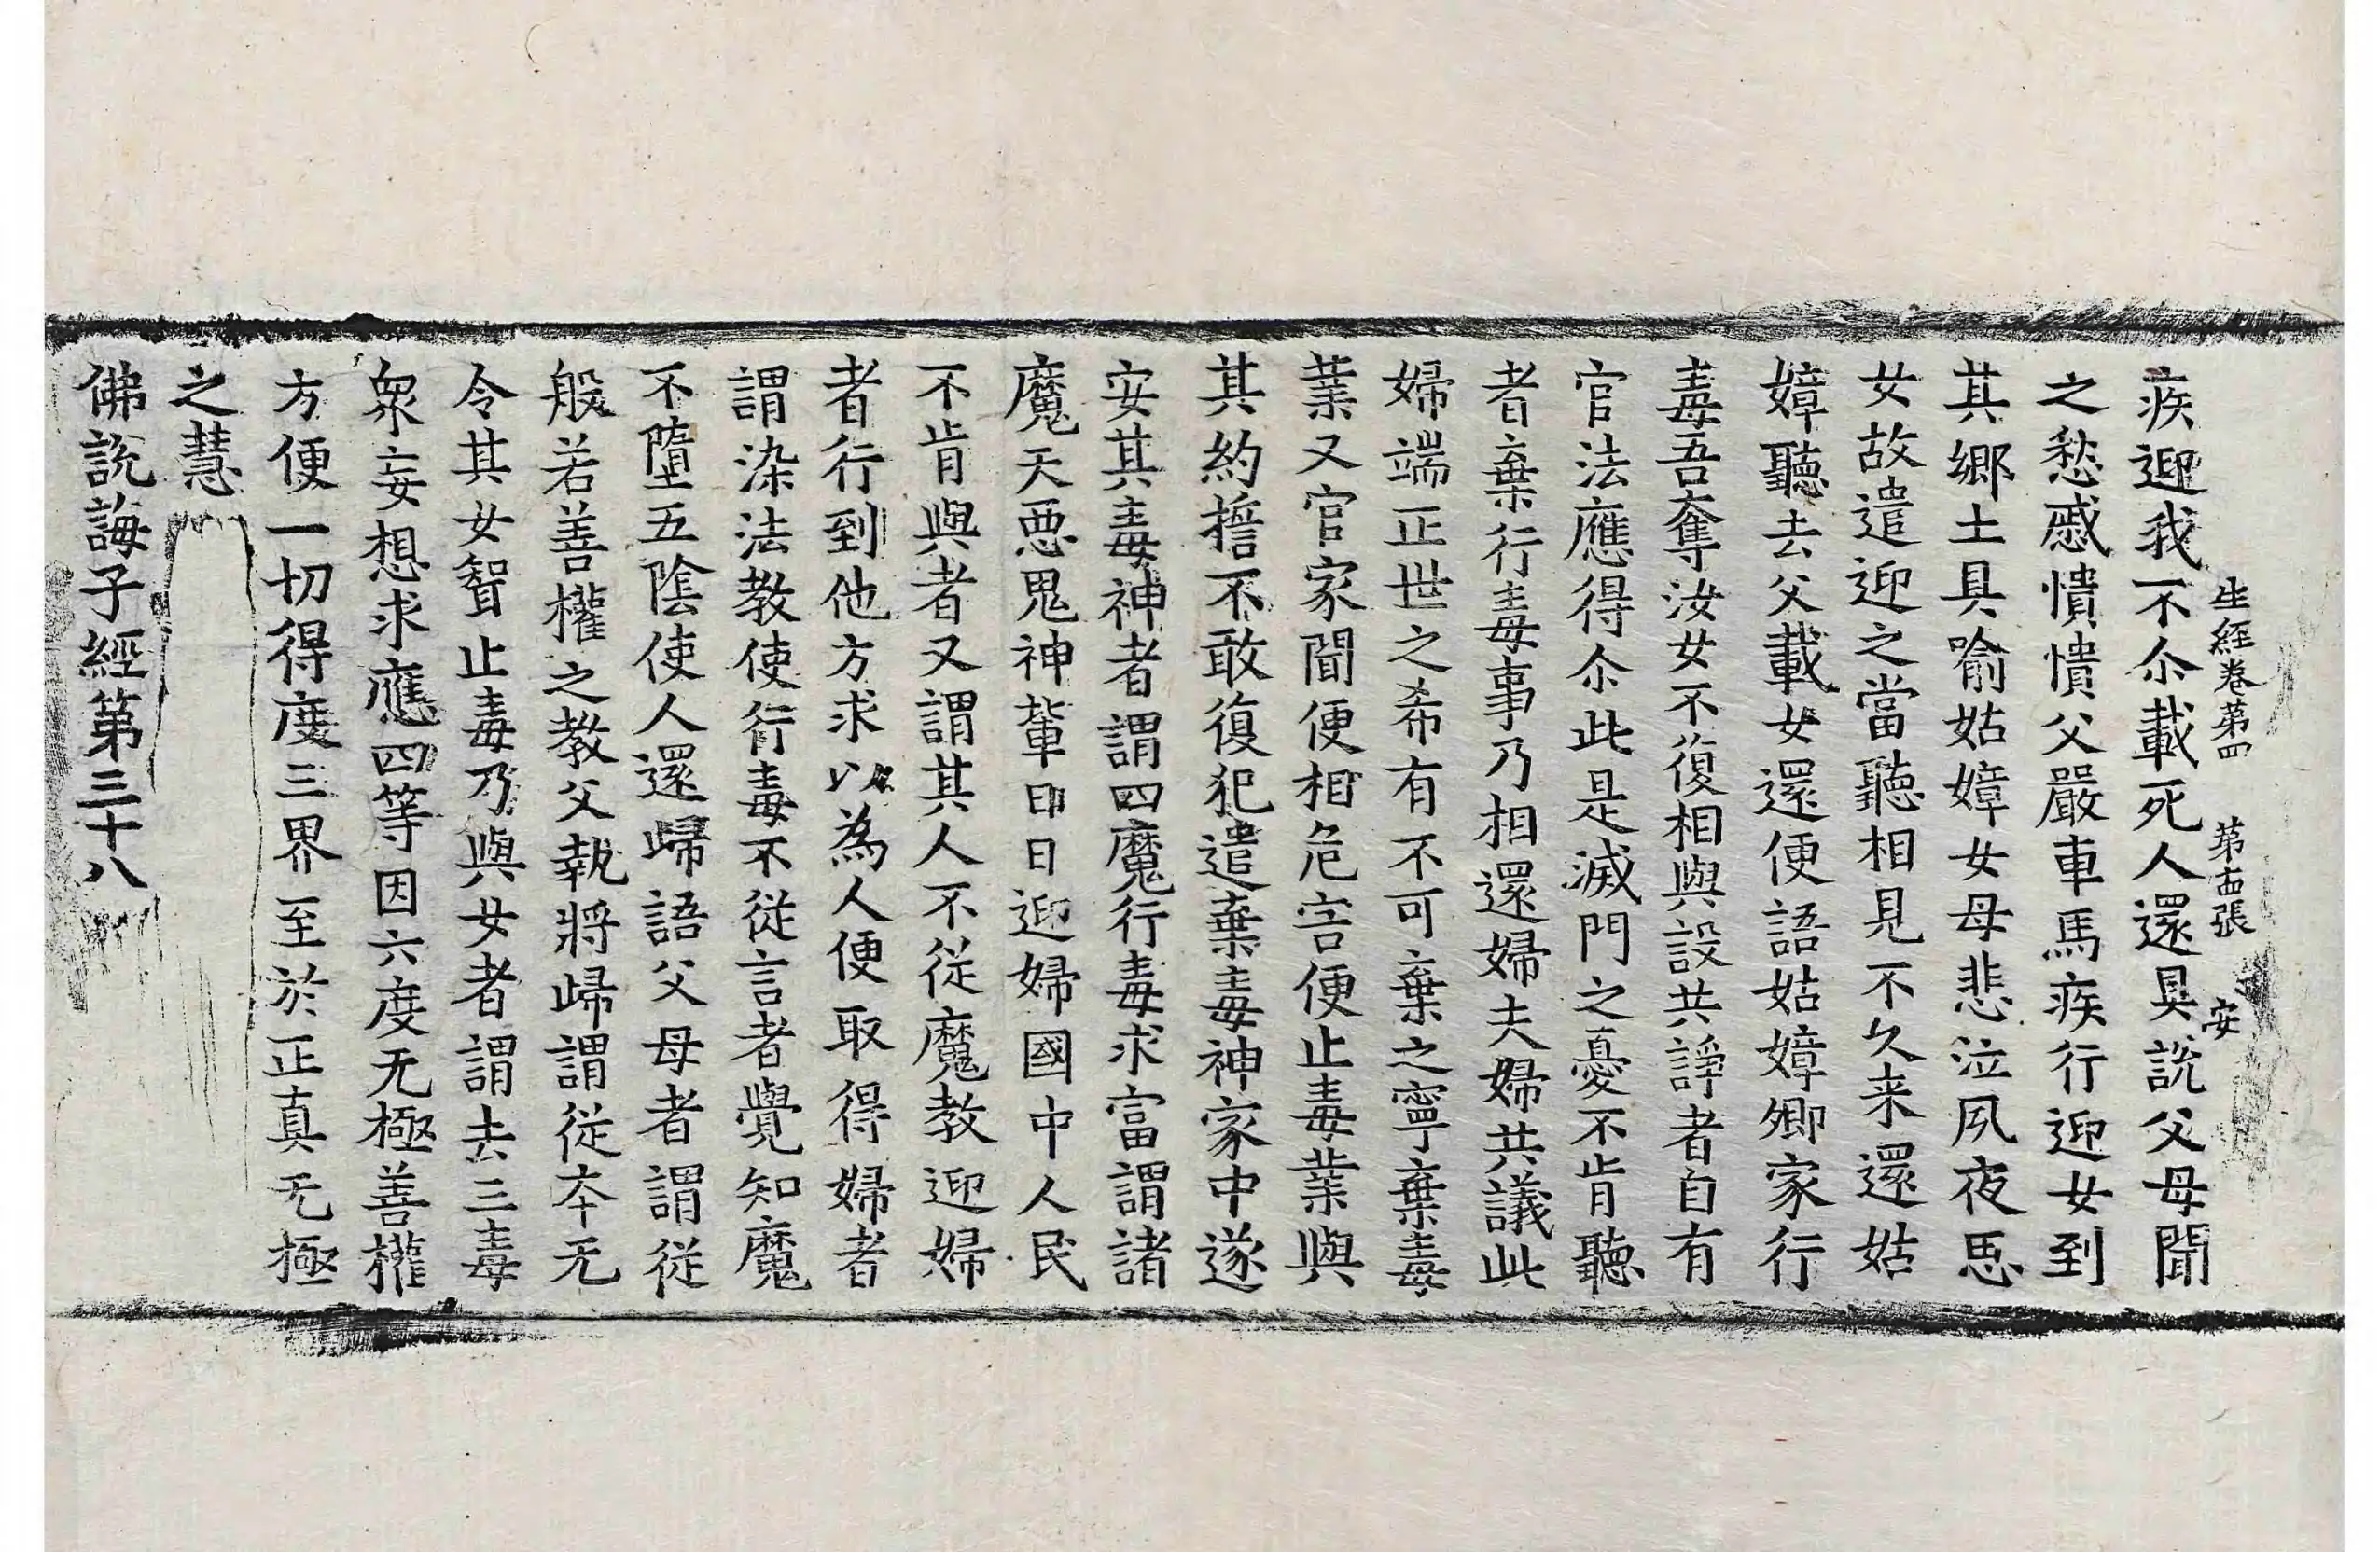 生經卷第四 第十四張 安
疾迎我不尒載死人還具說父母聞
之愁慼憒憒父嚴車馬疾行迎女到
其鄉土具喻姑嫜女母悲泣夙夜思
女故遣迎之當聽相見不久来還姑
嫜聽去父載女還便語姑嫜卿家行
毒吾奪汝女不復相與設共諍者自有
官法應得尒此是滅門之憂不肯聽
者棄行毒事乃相還婦夫婦共議此
婦端正世之希有不可棄之寧棄毒
業又官家聞便相危害便止毒業與
其約擔不敢復犯遣棄毒神家中遂
安其毒神者謂四魔行毒求富謂諸
魔天惡鬼神輩日日迎婦國中人民
不肯與者又謂其人不從魔教迎婦
者行到他方求以為人便取得婦者
謂染法教使行毒不從言者覺知魔
不墮五陰使人還歸語父母者謂從
般若善權之教父執將歸謂從本无
令其女聟止毒乃與女者謂去三毒
衆妄想求應四等因六度无極善權
方便一切得度三界至於正真无極
之慧
佛說誨子經第三十八